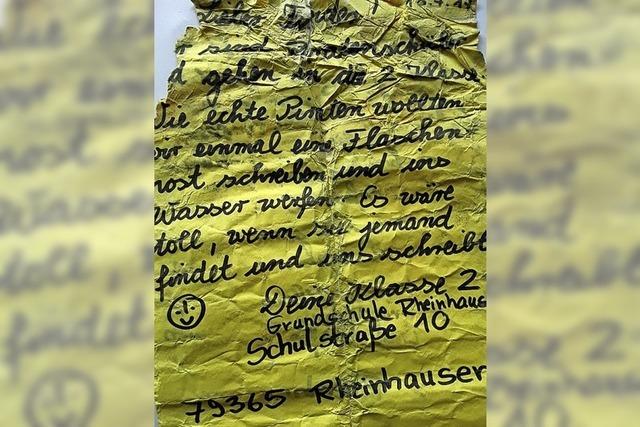 Lieber Finder
sind
gehen in die 2. Klasse.
Wie echte Piraten wollten
wir einmal eine Flaschen=
post schreiben und ins
Wasser werfen. Es wäre
toll, wenn sie jemand
findet und uns schreibt
Deine Klasse 2
Grundschule Rheinhaus
Schulstraße 10
79365 Rheinhausen